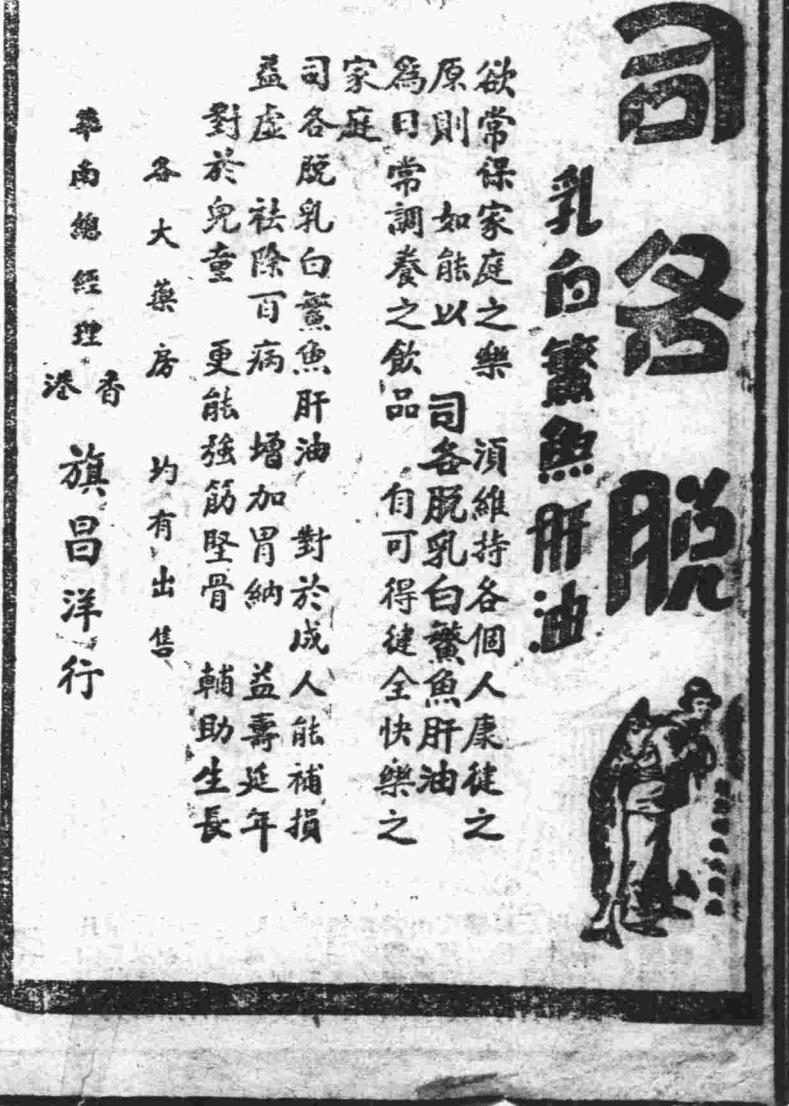 司各脱
乳白鰵魚肝油
欲常保家庭之樂 須維持各個人康健之
原則 如能以 司各脱乳白鰵魚肝油
為日常調養之飲品 自可得健全快樂之
家庭
司各脱乳白鰵魚肝油 對於成人能補損
益虛 祛除百病 增加胃納 益壽延年
對於兒童 更能強筋堅骨 輔助生長
各大藥房 均有出售
華南總經理 香港 旗昌洋行